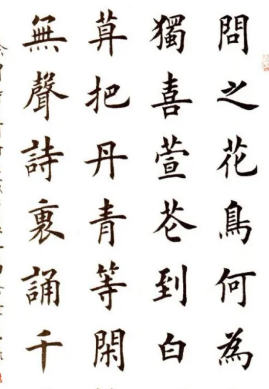 問之花鳥何為
獨喜萱花到白
草把丹青等閑
無聲詩裏誦千